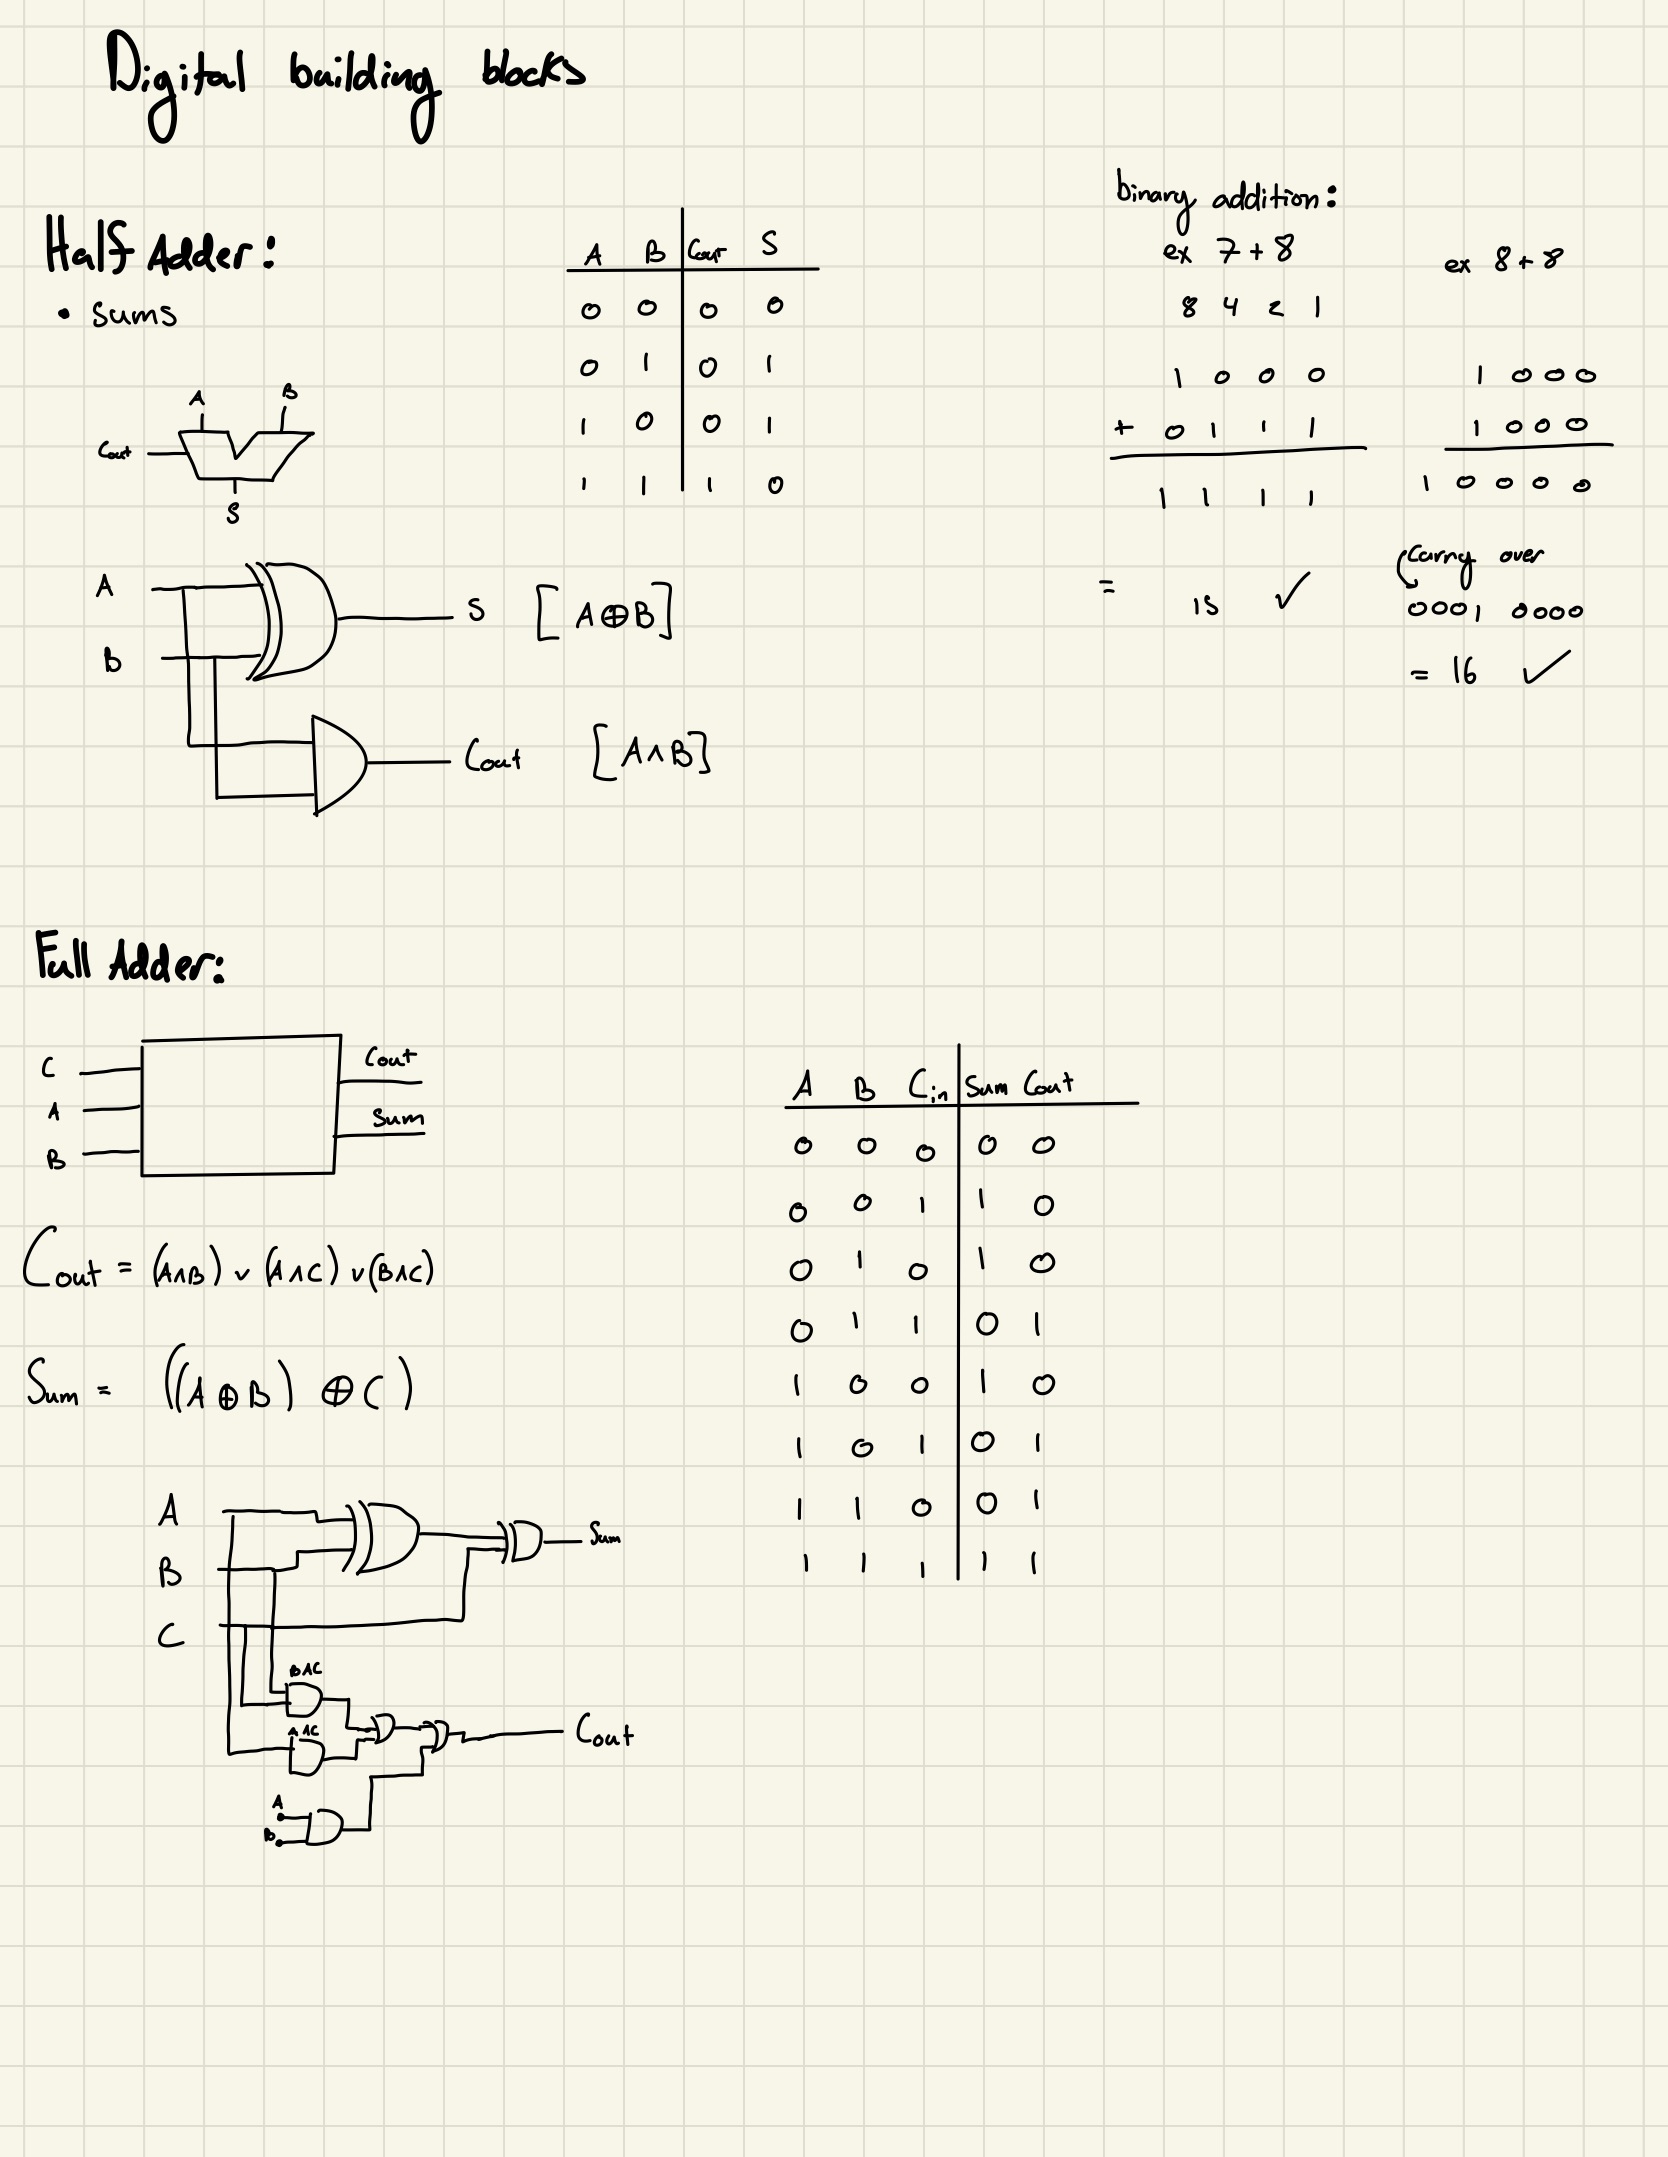 Digital building blocks
Half Adder:
• sums
A B Cout S
0 0 0 0
0 1 0 1
1 0 0 1
1 1 1 0
A B
Cout
S
A
B
S [A⊕B]
Cout [A∧B]
binary addition:
ex 7+8
8 4 2 1
1 0 0 0
+ 0 1 1 1
1 1 1 1
= 15 ✓
ex 8+8
1 0 0 0
1 0 0 0
1 0 0 0 0
Carry over
0001 0000
= 16 ✓
Full Adder:
C
A
B
Cout
Sum
Cout = (A∧B) ∨ (A∧C) ∨ (B∧C)
Sum = ((A⊕B) ⊕ C)
A B Cin Sum Cout
0 0 0 0 0
0 0 1 1 0
0 1 0 1 0
0 1 1 0 1
1 0 0 1 0
1 0 1 0 1
1 1 0 0 1
1 1 1 1 1
A
B
C
Sum
B∧C
A∧C
Cout
A
B